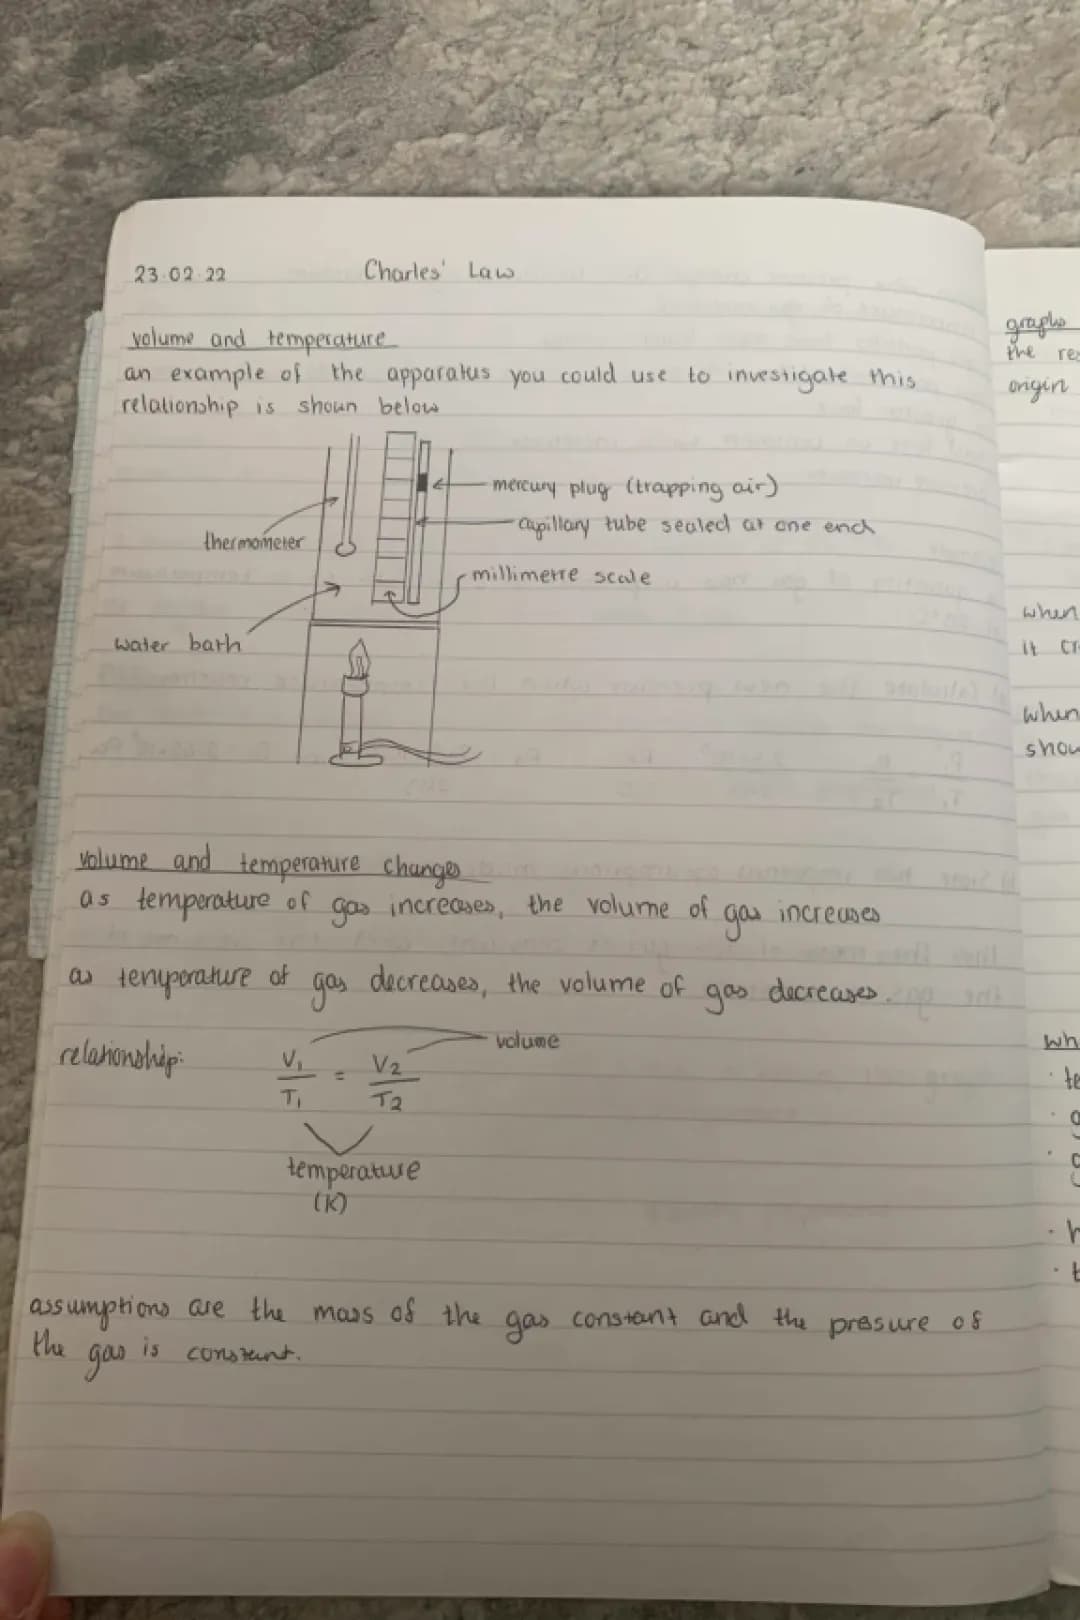 23.02.22
Charles' Law
volume and temperature
an example of the apparatus you could use to investigate this
relationship is shown below
mercury plug (trapping air)
capillary tube sealed at one end
thermometer
millimetre scale
water bath
volume and temperature changes
as temperature of gas increases, the volume of gas increases
as temperature of gas decreases, the volume of gas decreases.
relationship:
V1 = V2
T1 T2
volume
temperature
(K)
assumptions are the mass of the gas constant and the pressure of
the gas is constant.
graphs
the
origin
when
it
when